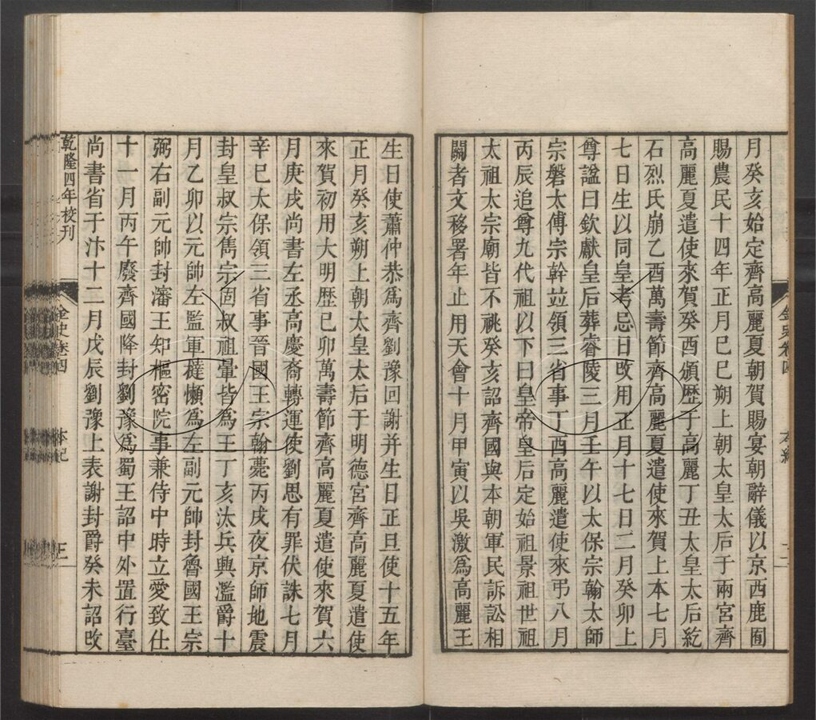 月癸亥始定齊高麗夏朝賀賜宴朝辭儀以京西鹿囿
賜農民十四年正月巳巳朔上朝太皇太后于兩宮齊
高麗夏遣使來賀癸酉頒歷于高麗丁丑太皇太后紇
石烈氏崩乙酉萬壽節齊高麗夏遣使來賀上本七月
七日生以同皇考忌日改用正月十七日二月癸卯上
尊諡曰欽獻皇后葬睿陵三月壬午以太保宗翰太師
宗磐太傅宗幹竝領三省事丁酉高麗遣使來弔八月
丙辰追尊九代祖以下曰皇帝皇后定始祖景祖世祖
太祖太宗廟皆不祧癸亥詔齊國與本朝軍民訴訟相
關者文移署年止用天會十月甲寅以吳激為高麗王
生日使蕭仲恭為齊劉豫回謝并生日正旦使十五年
正月癸亥朔上朝太皇太后于明德宮齊高麗夏遣使
來賀初用大明歷己卯萬壽節齊高麗夏遣使來賀六
月庚戌尚書左丞高慶裔轉運使劉思有罪伏誅七月
辛巳太保領三省事晉國王宗翰薨丙戌夜京師地震
封皇叔宗雋宗固叔祖暈皆為王丁亥汰兵興濫爵十
月乙卯以元帥左監軍撻懶為左副元帥封魯國王宗
弼右副元帥封瀋王知樞密院事兼侍中時立愛致仕
十一月丙午廢齊國降封劉豫為蜀王詔中外置行臺
尚書省于汴十二月戊辰劉豫上表謝封爵癸未詔改
乾隆四年校刊
金史卷四
本紀